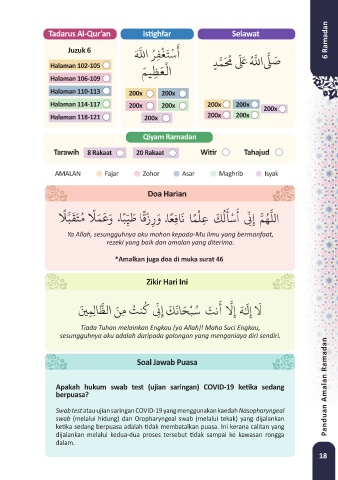 Tadarus Al-Qur'an
Istighfar
Selawat
Juzuk 6
Halaman 102-105
Halaman 106-109
Halaman 110-113
Halaman 114-117
Halaman 118-121
أَسْتَغْفِرُ اللَّهَ
الْعَظِيمَ
200x 200x
200x 200x
200x
صَلَّى اللَّهُ عَلَى مُحَمَّدٍ
200x 200x
200x
200x 200x
Qiyam Ramadan
Tarawih 8 Rakaat 20 Rakaat Witir Tahajud
AMALAN Fajar Zohor Asar Maghrib Isyak
Doa Harian
اللَّهُمَّ إِنِّي أَسْأَلُكَ عِلْمًا نَافِعًا، وَرِزْقًا طَيِّبًا، وَعَمَلًا مُتَقَبَّلًا
Ya Allah, sesungguhnya aku mohon kepada-Mu ilmu yang bermanfaat,
rezeki yang baik dan amalan yang diterima.
*Amalkan juga doa di muka surat 46
Zikir Hari Ini
لَا إِلَهَ إِلَّا أَنتَ سُبْحَانَكَ إِنِّي كُنتُ مِنَ الظَّالِمِينَ
Tiada Tuhan melainkan Engkau (ya Allah)! Maha Suci Engkau,
sesungguhnya aku adalah daripada golongan yang menganiaya diri sendiri.
Soal Jawab Puasa
Apakah hukum swab test (ujian saringan) COVID-19 ketika sedang
berpuasa?
Swab test atau ujian saringan COVID-19 yang menggunakan kaedah Nasopharyngeal
swab (melalui hidung) dan Oropharyngeal swab (melalui tekak) yang dijalankan
ketika sedang berpuasa adalah tidak membatalkan puasa. Ini kerana calitan yang
dijalankan melalui kedua-dua proses tersebut tidak sampai ke kawasan rongga
dalam.
6 Ramadan
Panduan Amalan Ramadan
18